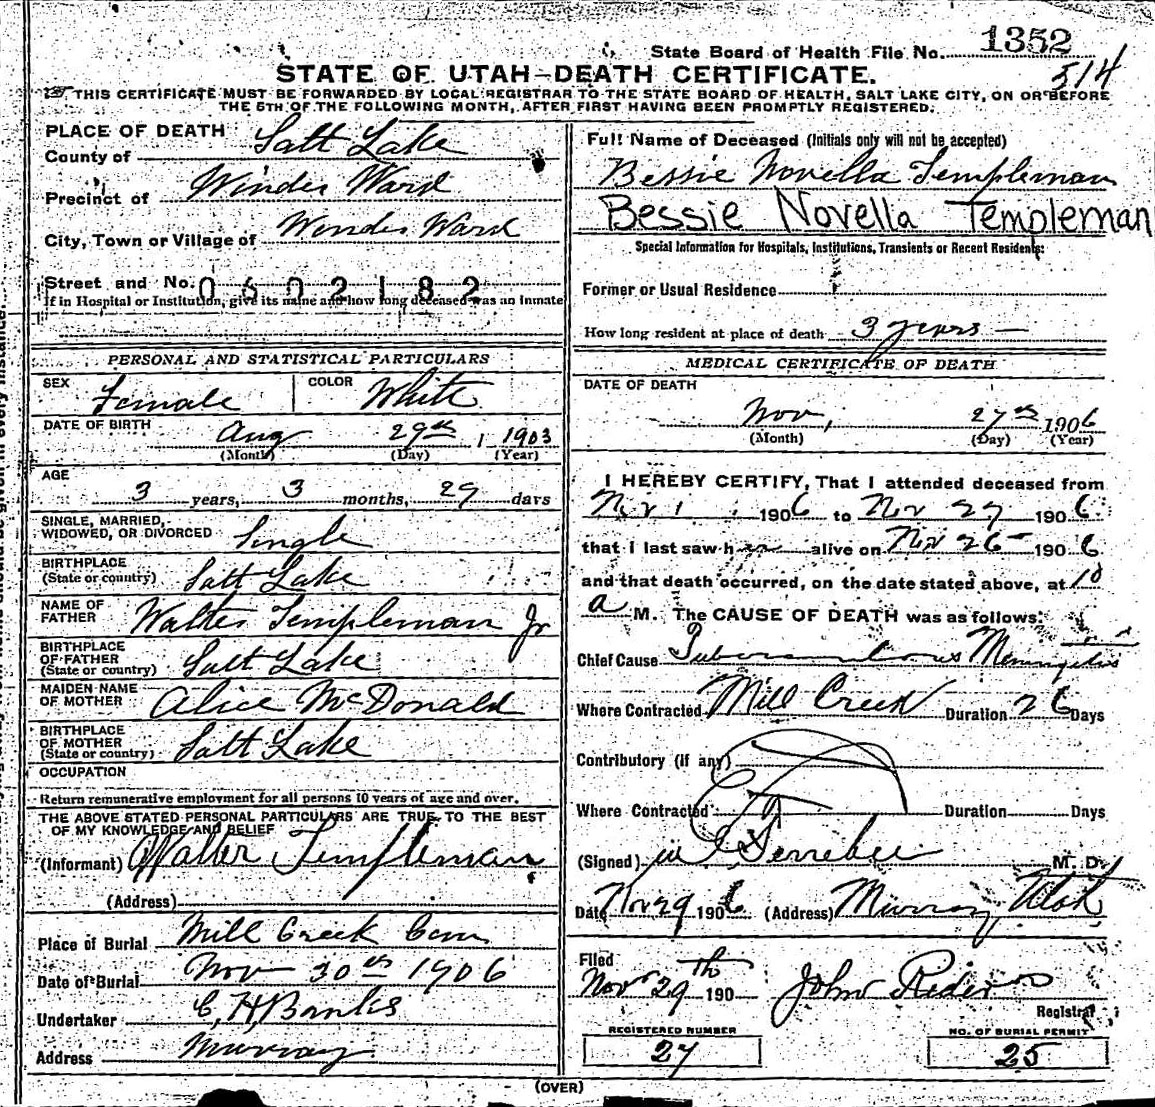 State Board of Health File No. 1352
514
STATE OF UTAH—DEATH CERTIFICATE.
THIS CERTIFICATE MUST BE FORWARDED BY LOCAL REGISTRAR TO THE STATE BOARD OF HEALTH, SALT LAKE CITY, ON OR BEFORE
THE 5TH OF THE FOLLOWING MONTH, AFTER FIRST HAVING BEEN PROMPTLY REGISTERED.
PLACE OF DEATH
County of Salt Lake
Precinct of Winder Ward
City, Town or Village of Winder Ward
Street and No. 0602182
If in Hospital or Institution, give its name and how long deceased was an inmate
PERSONAL AND STATISTICAL PARTICULARS
SEX Female COLOR White
DATE OF BIRTH Aug 29th, 1903
(Month) (Day) (Year)
AGE
3 years, 3 months, 29 days
SINGLE, MARRIED,
WIDOWED, OR DIVORCED Single
BIRTHPLACE
(State or country) Salt Lake
NAME OF
FATHER Walter Templeman Jr
BIRTHPLACE
OF FATHER
(State or country) Salt Lake
MAIDEN NAME
OF MOTHER Alice McDonald
BIRTHPLACE
OF MOTHER
(State or country) Salt Lake
OCCUPATION
Return remunerative employment for all persons 10 years of age and over.
THE ABOVE STATED PERSONAL PARTICULARS ARE TRUE TO THE BEST
OF MY KNOWLEDGE AND BELIEF
(Informant) Walter Templeman
(Address)
Place of Burial Mill Creek Cem
Date of Burial Nov 30th 1906
Undertaker C. H. Banks
Address Murray
Full Name of Deceased (Initials only will not be accepted)
Bessie Novella Templeman
Bessie Novella Templeman
Special Information for Hospitals, Institutions, Transients or Recent Residents:
Former or Usual Residence
How long resident at place of death 3 years
MEDICAL CERTIFICATE OF DEATH
DATE OF DEATH
Nov, 27th 1906
(Month) (Day) (Year)
I HEREBY CERTIFY, That I attended deceased from
Nov 1 1906 to Nov 27 1906.
that I last saw her alive on Nov 26 1906
and that death occurred, on the date stated above, at 10
a M. The CAUSE OF DEATH was as follows:
Chief Cause Tuberculous Meningitis
Where Contracted Mill Creek Duration 26 Days
Contributory (if any)
Where Contracted Duration Days
(Signed) M. D.
Date Nov 29 1906 (Address) Murray, Utah
Filed
Nov 29th 190 John Rider
Registrar
REGISTERED NUMBER
27
NO. OF BURIAL PERMIT
25
(OVER)